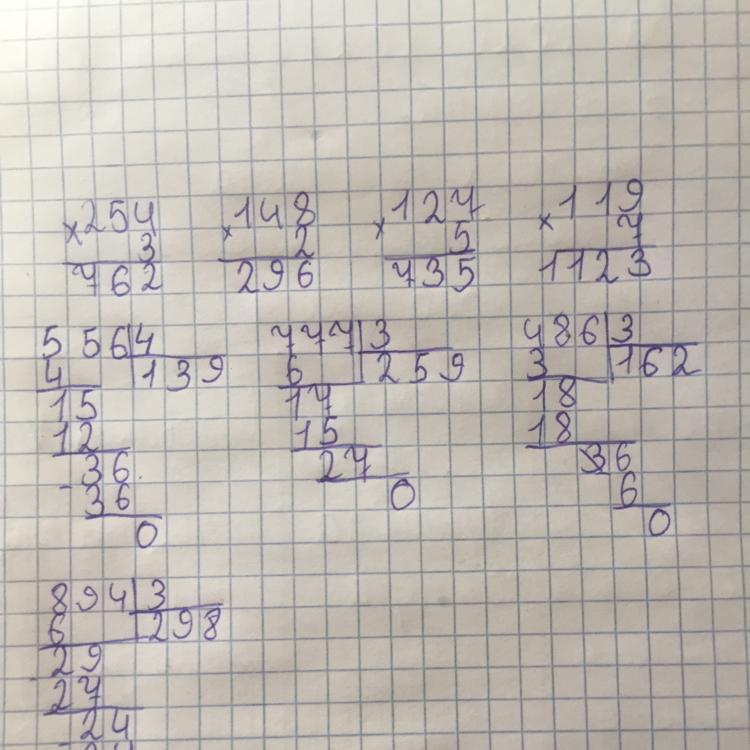 ×254 ×148 ×127 ×119
3 2 5 7
762 296 735 1123
556|4 777|3 486|3
4 139 6 259 3 162
15 17 18
12 15 18
-36 27 36
36 0 6
0 0
894|3
6 298
29
27
24